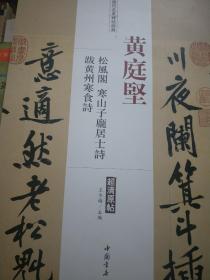 黄庭堅
松風閣 寒山子龐居士詩
跋黄州寒食詩
超清原帖
中國書店
川夜闌箕斗插
意適然老松魁